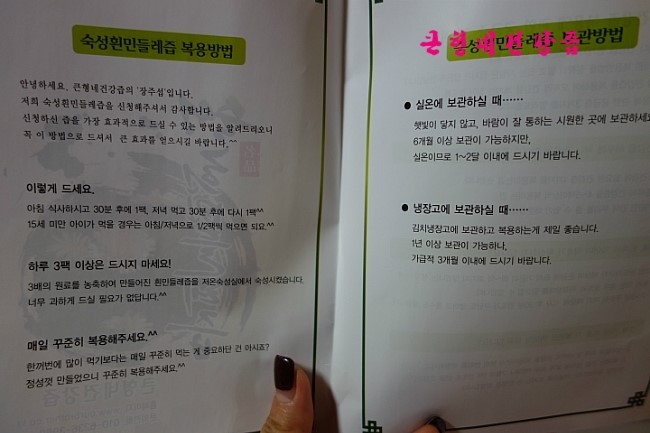 숙성흰민들레즙 복용방법
안녕하세요. 큰형네진강즙의 '장주섭'입니다.
저희 숙성흰민들레즙을 신청해주셔서 감사합니다.
신청하신 즙을 가장 효과적으로 드실 수 있는 방법을 알려드리오니
꼭 이 방법으로 드셔서 큰 효과를 얻으시길 바랍니다.^^
이렇게 드세요.
아침 식사하시고 30분 후에 1팩, 저녁 먹고 30분 후에 다시 1팩^^
15세 미만 아이가 먹을 경우는 아침/저녁으로 1/2팩씩 먹으면 되요.^^
하루 3팩 이상은 드시지 마세요!
3배의 원료를 농축하여 만들어진 흰민들레즙을 저온숙성실에서 숙성시켰습니다.
너무 과하게 드실 필요가 없답니다.^^
매일 꾸준히 복용해주세요.^^
한꺼번에 많이 먹기보다는 매일 꾸준히 먹는 게 중요하단 건 아시죠?
정성껏 만들었으니 꾸준히 복용해주세요.^^
숙성흰민들레즙 보관방법
● 실온에 보관하실 때……
햇빛이 닿지 않고, 바람이 잘 통하는 시원한 곳에 보관하세요
6개월 이상 보관이 가능하지만,
실온이므로 1~2달 이내에 드시기 바랍니다.
● 냉장고에 보관하실 때……
김치냉장고에 보관하고 복용하는게 제일 좋습니다.
1년 이상 보관이 가능하나,
가급적 3개월 이내에 드시기 바랍니다.